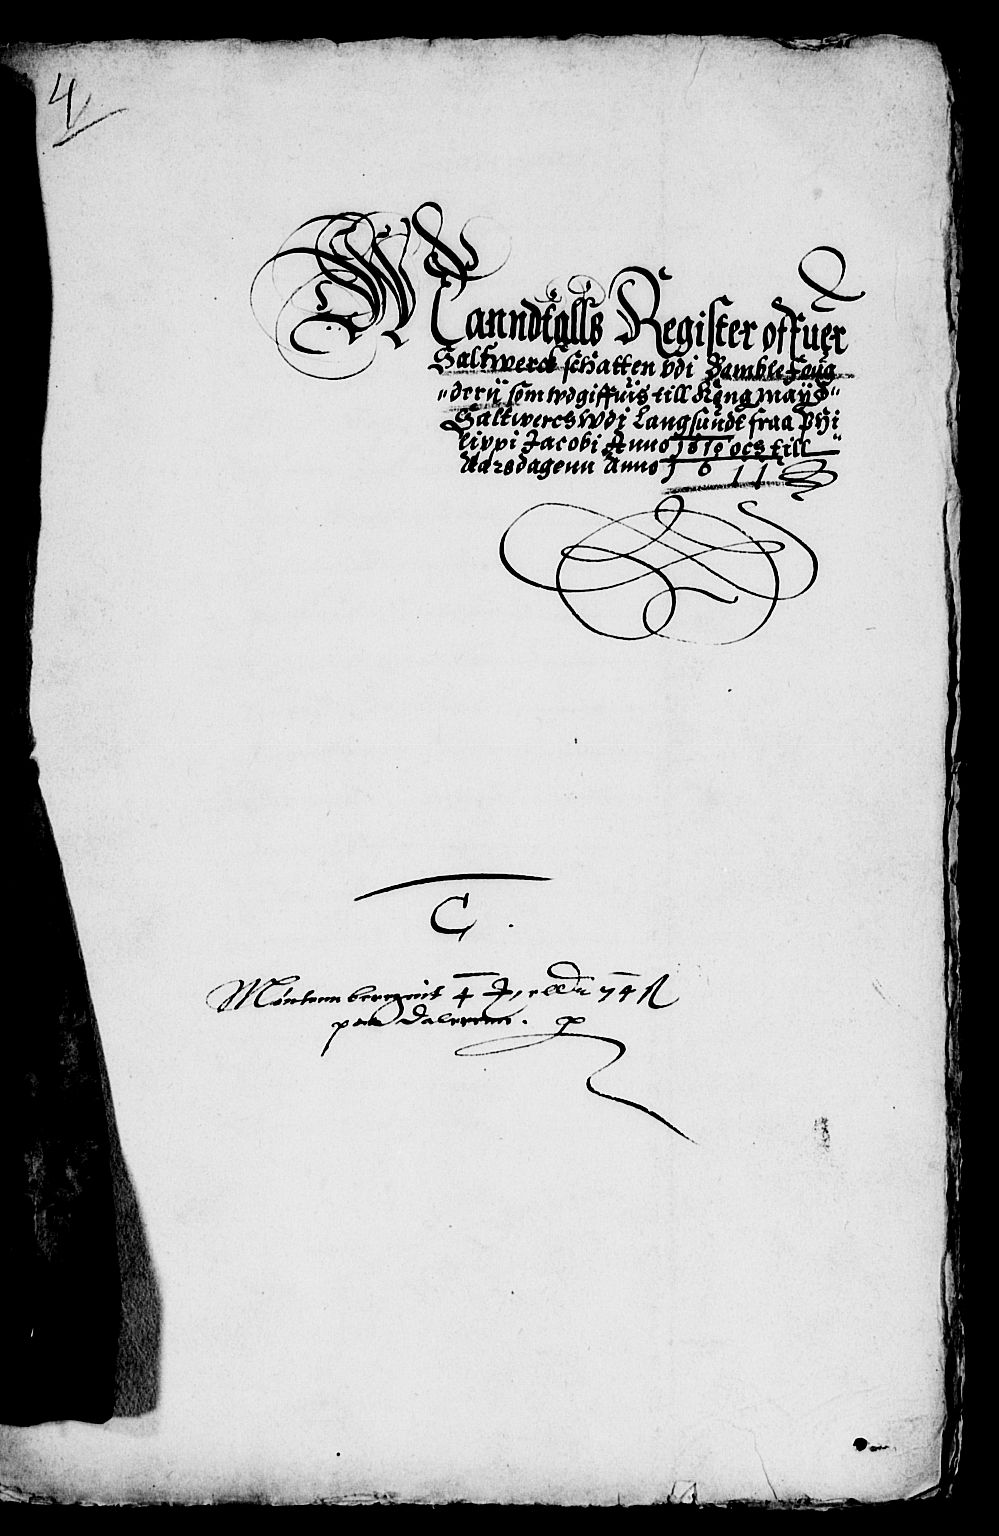 4
Manndtalls Register offuer
Saltwerck schatten vdi Bamble foug
derij som wdgiffuis till Kong maijts
Saltwercs wdj Langsundt fraa Phi
lippi Jacobi Anno 1610 och till
Aarsdagenn Anno 1611
C.
Møntenn beregnit 4 eller 74 ß
paa Dalerenn.